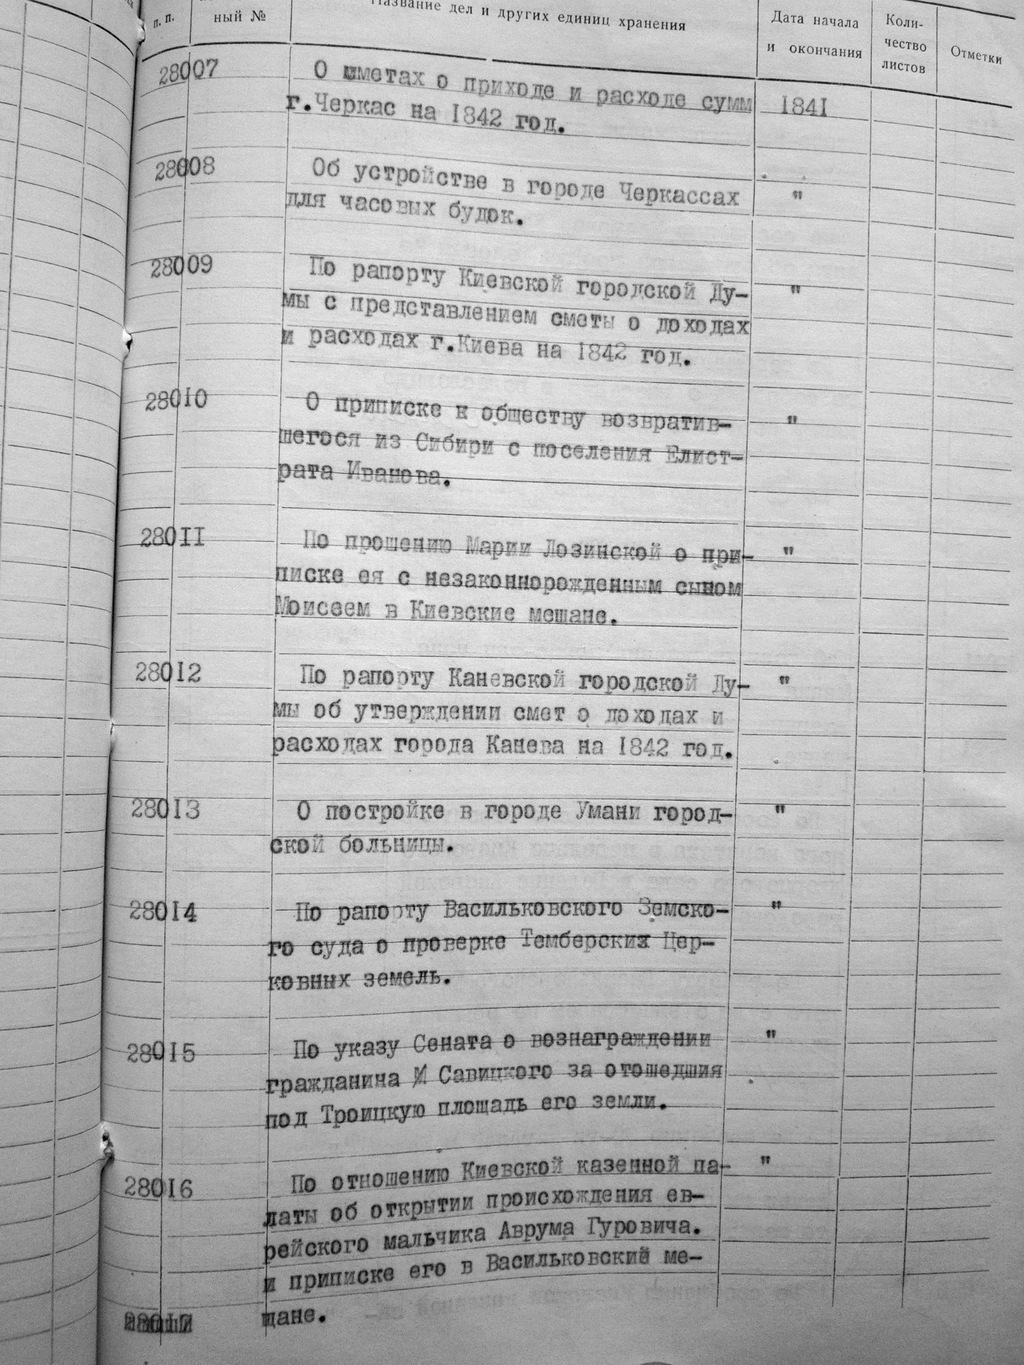 п. п.
ный №
Название дел и других единиц хранения
Дата начала
и окончания
Коли-
чество
листов
Отметки
28007 О сметах о приходе и расходе сумм 1841
г.Черкас на 1842 год.
28008 Об устройстве в городе Черкассах "
для часовых будок.
28009 По рапорту Киевской городской Ду- "
мы с представлением сметы о доходах
и расходах г.Киева на 1842 год.
28010 О приписке к обществу возвратив- "
шегося из Сибири с поселения Елист-
рата Иванова.
28011 По прошению Марии Лозинской о при- "
писке ея с незаконнорожденным сыном
Моисеем в Киевские мещане.
28012 По рапорту Каневской городской Ду- "
мы об утверждении смет о доходах и
расходах города Канева на 1842 год.
28013 О постройке в городе Умани город- "
ской больницы.
28014 По рапорту Васильковского Земско- "
го суда о проверке Темберских Цер-
ковных земель.
28015 По указу Сената о вознаграждении "
гражданина И Савицкого за отошедшия
под Троицкую площадь его земли.
28016 По отношению Киевской казенной па- "
латы об открытии происхождения ев-
рейского мальчика Аврума Гуровича.
и приписке его в Васильковский ме-
щане.